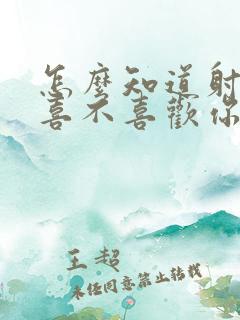 怎麼知道射
喜不喜歡你
王超
未经同意禁止转载